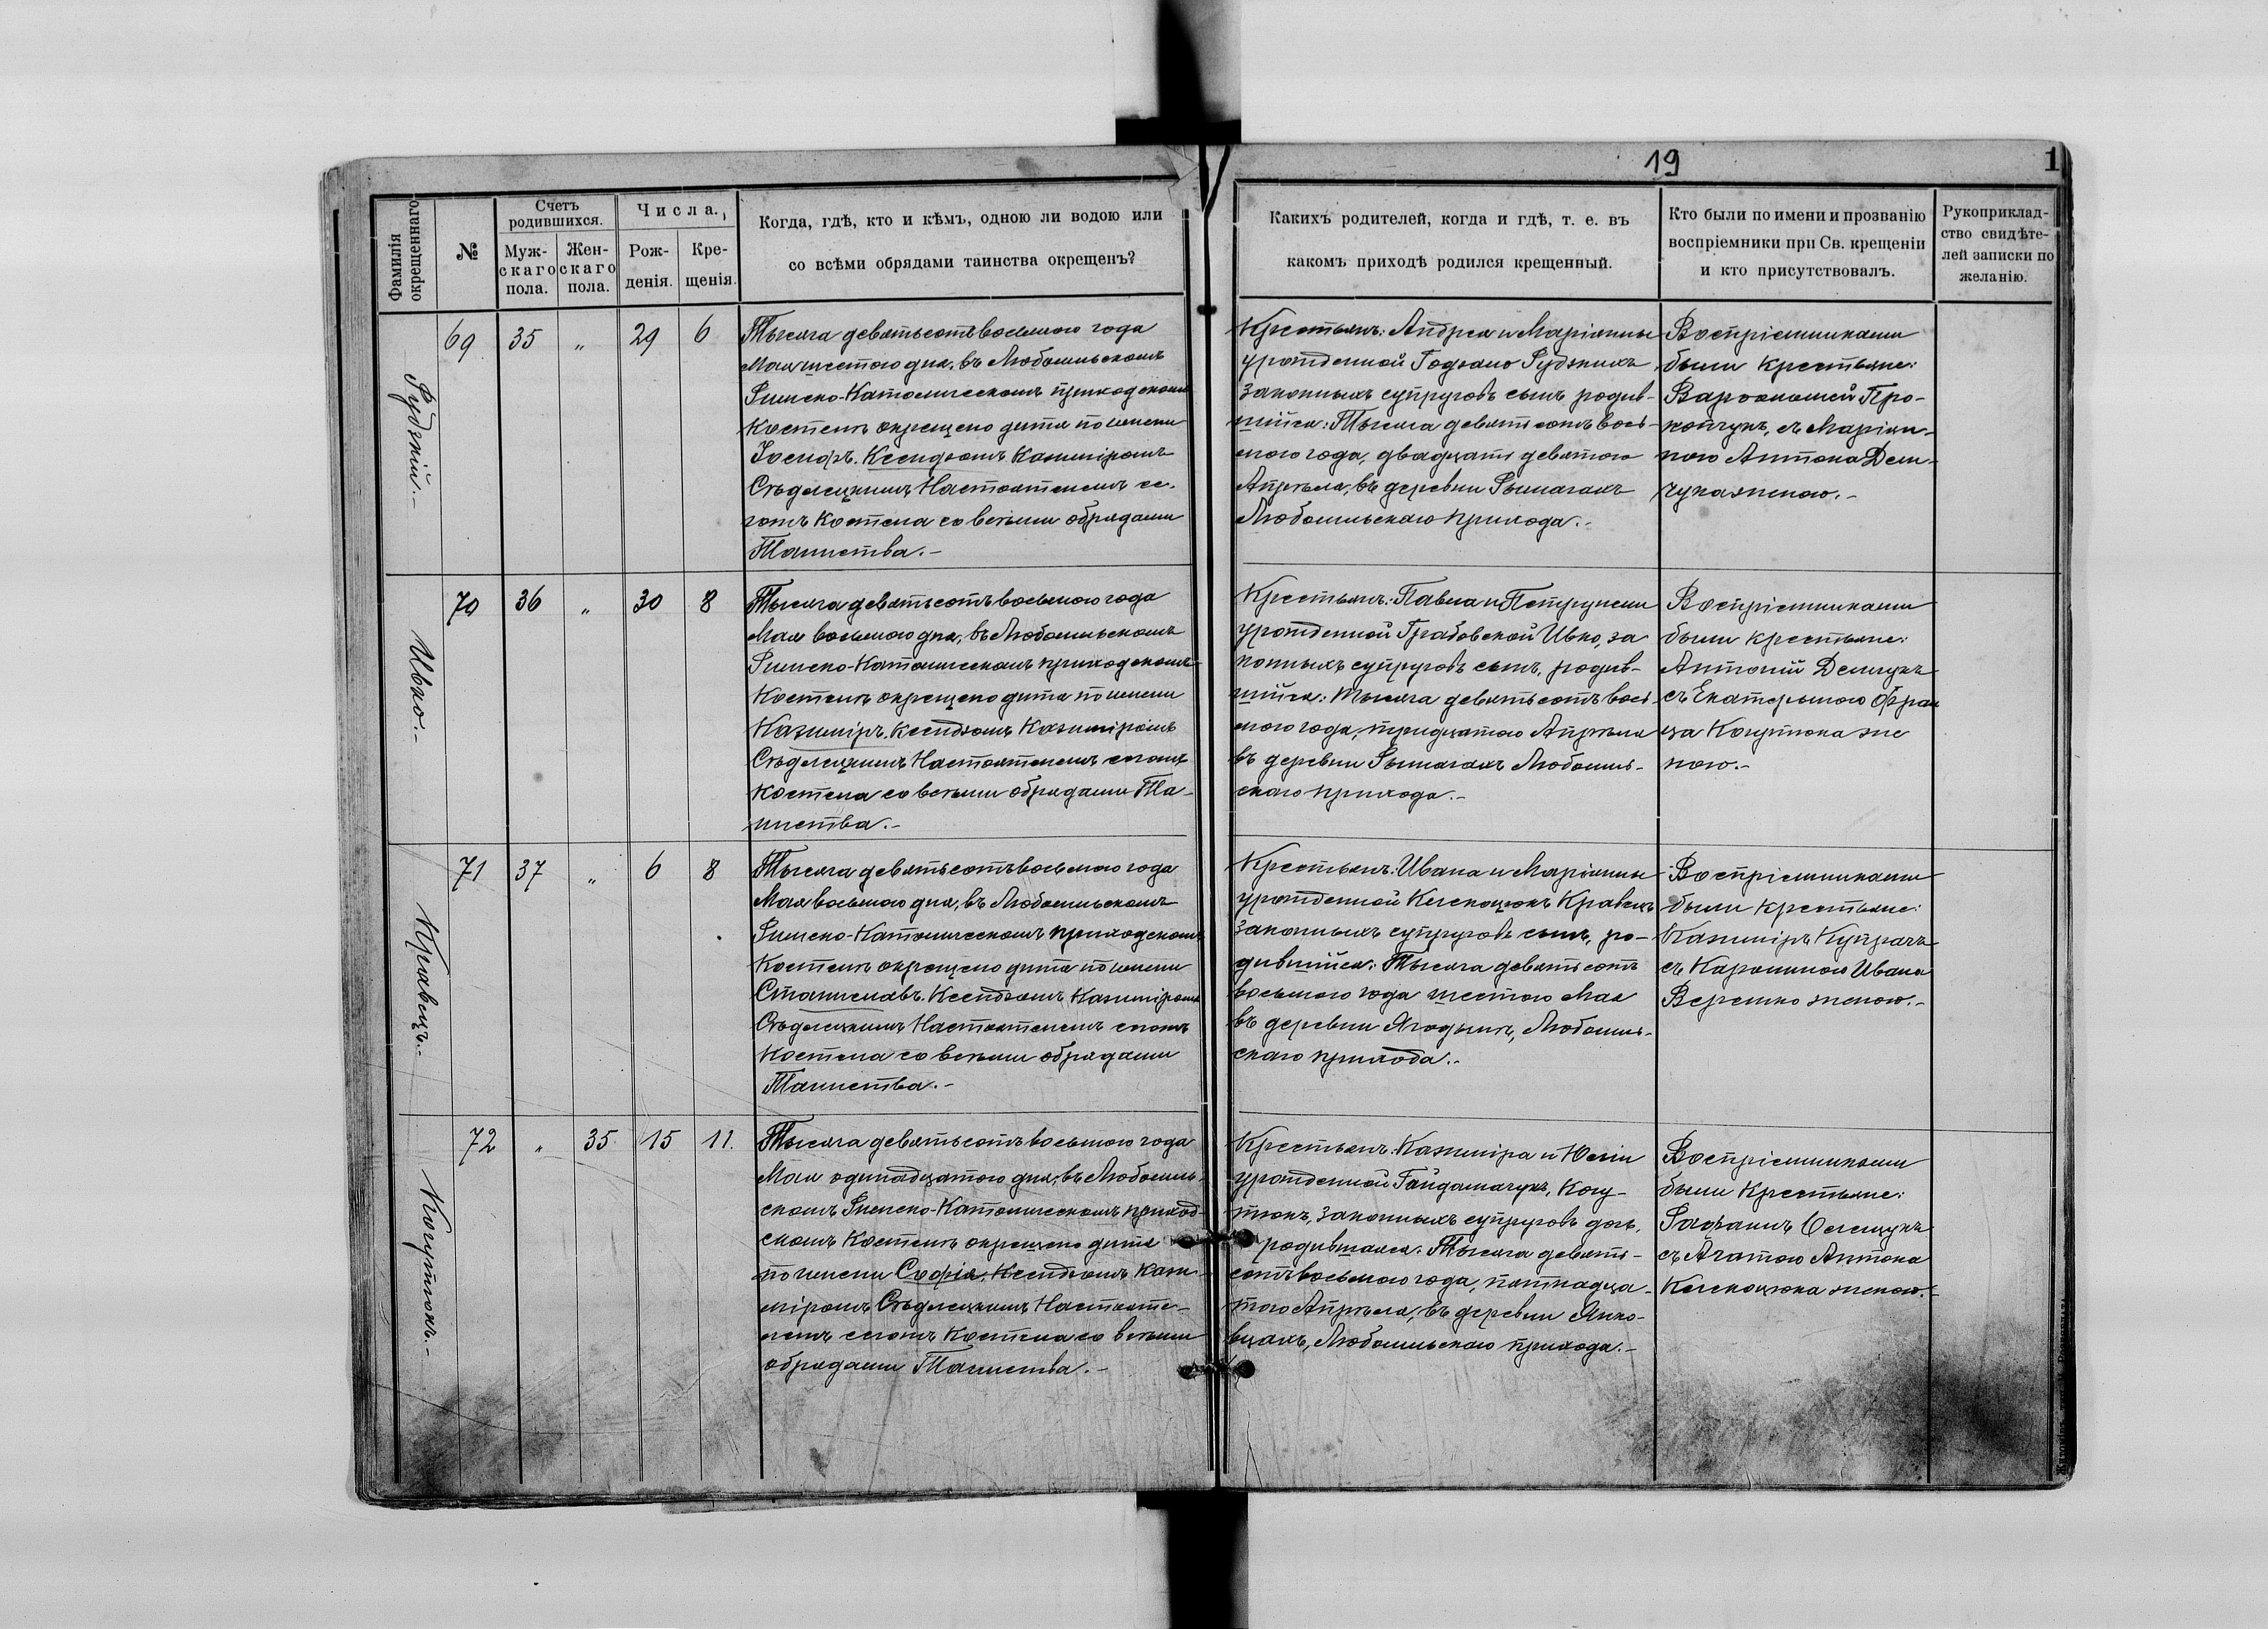 19
1
Фамилія
окрещеннаго
№
Счетъ
родившихся.
Муж-
скаго
пола.
Жен-
скаго
пола.
Числа.
Рож-
денія.
Кре-
щенія.
Когда, гдѣ, кто и кѣмъ, одною ли водою или
со всѣми обрядами таинства окрещенъ?
Какихъ родителей, когда и гдѣ, т. е. въ
какомъ приходѣ родился крещенный.
Кто были по имени и прозванію
воспріемники при Св. крещеніи
и кто присутствовалъ.
Рукоприклад-
ство свидѣте-
лей записки по
желанію.
Рудзкій.-
69 35 „ 29 6
Тысяча девятьсотъ восьмого года
Мая шестого дня, въ Любомльскомъ
Римско-Католическомъ приходскомъ
Костелѣ окрещено дитя по имени
Іосифъ. Ксендзомъ Казиміромъ
Сѣдлецкимъ Настоятелемъ се-
готъ Костела со всѣми обрядами
Таинства.-
Крестьянъ: Андрея и Маріанны
урожденной Годзало Рудзкихъ,
законныхъ супруговъ сынъ родив-
шійся: Тысяча девятьсотъ вось-
мого года, двадцать девятого
Апрѣля, въ деревни Рымачахъ
Любомльскаго прихода.-
Воспріемниками
были крестьяне:
Варѳоломей Про-
копчукъ, съ Маріан-
ною Антона Дем-
чука женою.-
Ивко.-
70 36 „ 30 8
Тысяча девятьсотъ восьмого года
Мая восьмого дня, въ Любомльскомъ
Римско-Католическомъ приходскомъ
Костелѣ окрещено дитя по имени
Казиміръ. Ксендзомъ Казиміромъ
Сѣдлецкимъ Настоятелемъ сеготъ
Костела со всѣми обрядами Та-
инства.-
Крестьянъ: Павла и Петрунели
урожденной Грабовской Ивко, за
конныхъ супруговъ сынъ, родив-
шійся: Тысяча девятьсотъ вось-
мого года, тридцатого Апрѣля
въ деревни Рымачахъ Любомль-
скаго прихода.-
Воспріемниками
были крестьяне:
Антоній Демчукъ
съ Екатериною Фран
ца Когутюка же
ною.-
Кравецъ.-
71 37 „ 6 8
Тысяча девятьсотъ восьмого года
Мая восьмого дня, въ Любомльскомъ
Римско-Католическомъ приходскомъ
Костелѣ окрещено дитя по имени
Станиславъ. Ксендзомъ Казиміромъ
Сѣдлецкимъ Настоятелемъ сеготъ
Костела со всѣми обрядами
Таинства.-
Крестьянъ: Ивана и Маріанны
урожденной Кескоцюкъ Кравецъ
законныхъ супруговъ сынъ, ро-
дившійся: Тысяча девятьсотъ
восьмого года шестого Мая
въ деревни Ягодынѣ, Любомль-
скаго прихода.-
Воспріемниками
были крестьяне:
Казиміръ Купрачъ
съ Каролиною Ивана
Верешко женою.-
Когутюкъ.-
72 „ 35 15 11.
Тысяча девятьсотъ восьмого года
Мая одинадцатого дня, въ Любомль-
скомъ Римско-Католическомъ приход-
скомъ Костелѣ окрещено дитя
по имени Софія. Ксендзомъ Кази-
міромъ Сѣдлецкимъ Настояте-
лемъ сеготъ Костела со всѣми
обрядами Таинства.-
Крестьянъ: Казиміра и Юліи
урожденной Гайдамачукъ, Когу-
тюкъ, законныхъ супруговъ дочь,
родившаяся: Тысяча девять-
сотъ восьмого года, пятнадца-
того Апрѣля, въ деревни Янко-
вцахъ, Любомльскаго прихода.-
Воспріемниками
были Крестьяне:
Рафаилъ
съ Агатою Антона
Кескоцюка женою.-